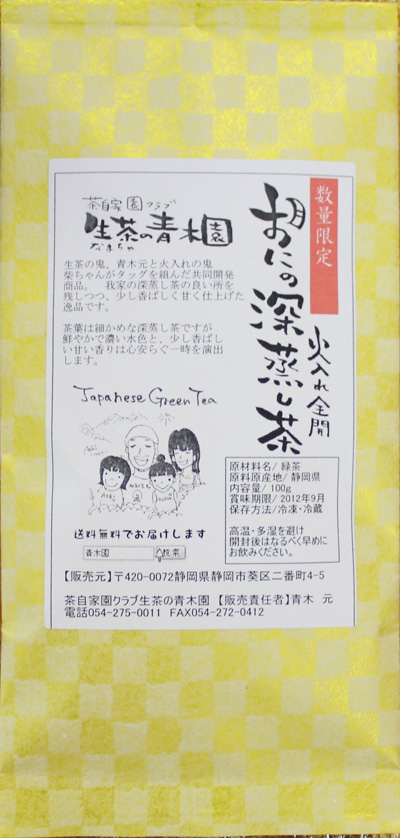 数量限定
おにの深蒸し茶
火入れ全開
茶自家園クラブ
生茶の青木園
なまちゃ
生茶の鬼、青木元と火入れの鬼
柴ちゃんがタッグを組んだ共同開発
商品。 我家の深蒸し茶の良い所を
残しつつ、少し香ばしく甘く仕上げた
逸品です。
茶葉は細かめな深蒸し茶ですが
鮮やかで濃い水色と、少し香ばし
い甘い香りは心安らぐ一時を演出
します。
Japanese Green Tea
送料無料でお届けします
青木園 検索
原材料名/ 緑茶
原料原産地/ 静岡県
内容量/ 100g
賞味期限/ 2012年9月
保存方法/ 冷凍・冷蔵
高温・多湿を避け
開封後はなるべく早めに
お飲みください。
【販売元】〒420-0072静岡県静岡市葵区二番町4-5
茶自家園クラブ生茶の青木園 【販売責任者】青木 元
電話054-275-0011 FAX054-272-0412